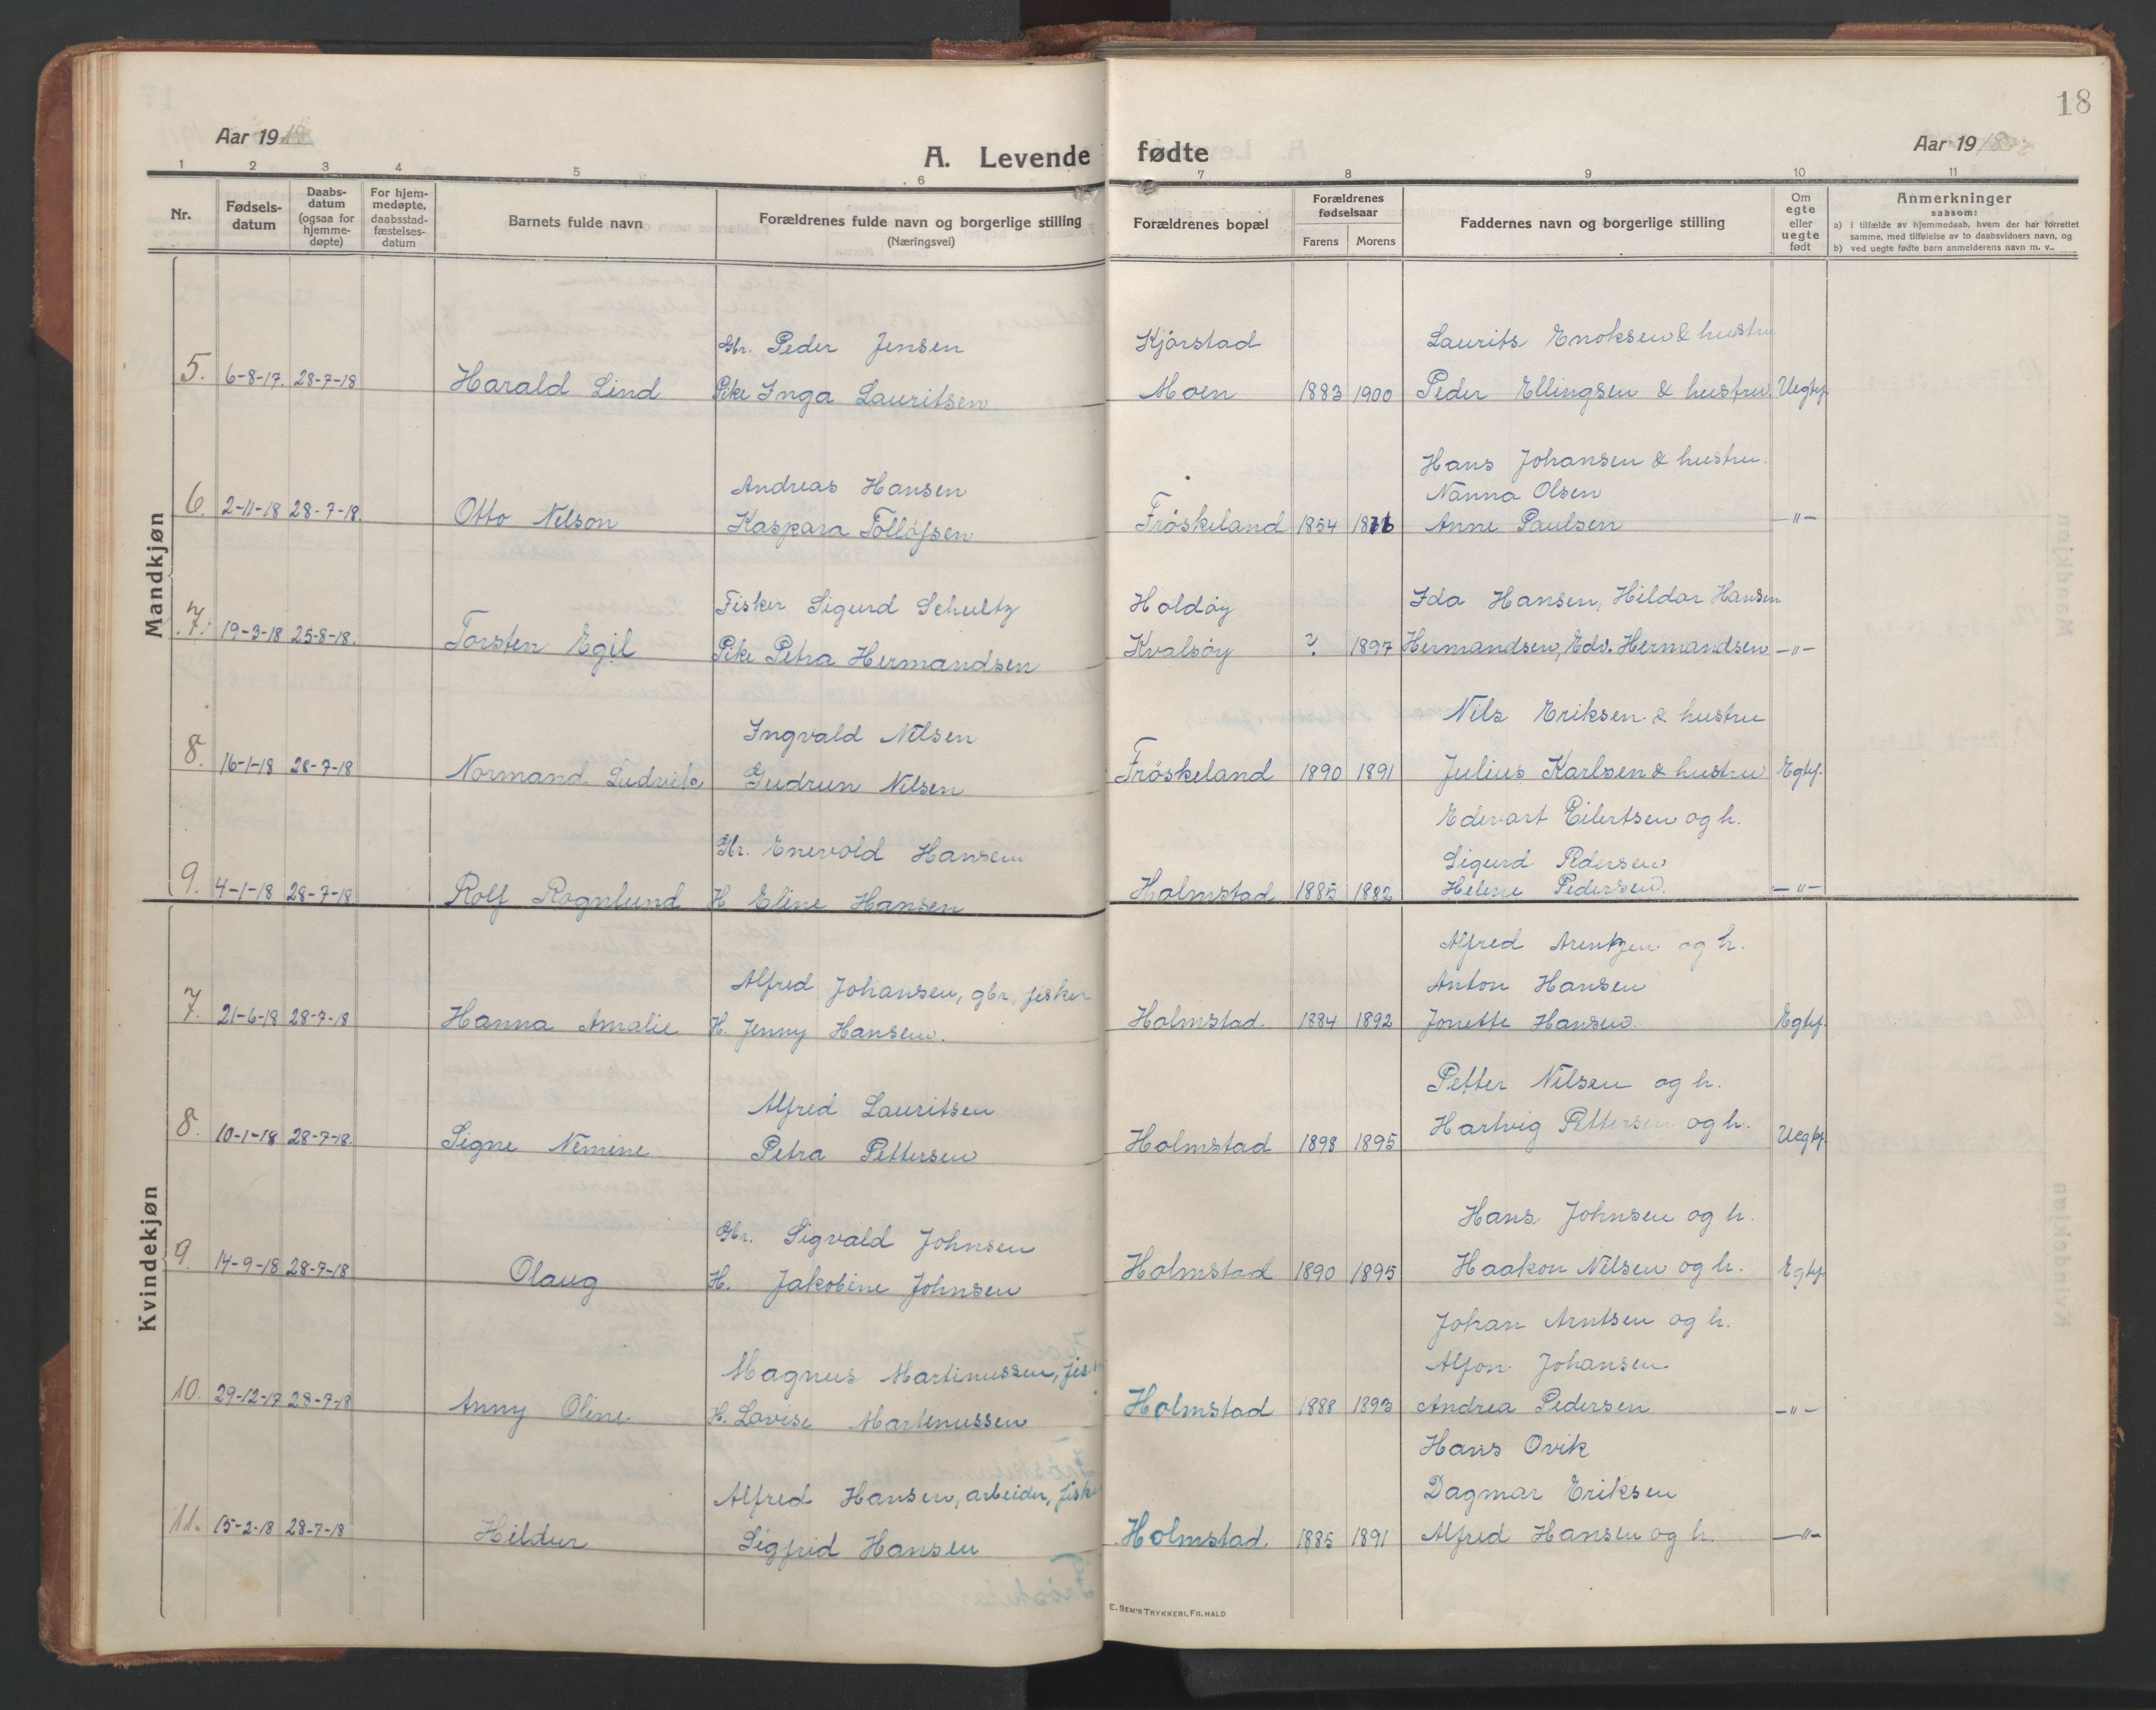 18
Aar 1918
A. Levende fødte
Aar 1918
1 2 3 4 5 6 7 8 9 10 11
Nr.
Fødsels-
datum
Daabs-
datum
(ogsaa for
hjemme-
døpte)
For hjem-
medøpte,
daabsstad-
fæstelses-
datum
Barnets fulde navn
Forældrenes fulde navn og borgerlige stilling
(Næringsvei)
Forældrenes bopæl
Forældrenes
fødselsaar
Farens Morens
Faddernes navn og borgerlige stilling
Om
egte
eller
uegte
født
Anmerkninger
saasom:
a) i tilfælde av hjemmedaab, hvem der har forrettet
samme, med tilføielse av to daabsvidners navn, og
b) ved uegte fødte barn anmelderens navn m. v..
Mandkjøn
Gbr. Peder Jensen Kjørstad Laurits Enoksen & hustru
5. 6-8-17. 28-7-18 Harald Lind Pike Inga Lauritsen Moen 1883 1900 Peder Ellingsen & hustru. Uegtef.
Andreas Hansen Hans Johansen & hustru.
Nanna Olsen
6. 2-11-18 28-7-18. Otto Nelson Kaspara Tollofsen Frøskeland 1854 1876 Anne Paulsen -"-
Fisker Sigurd Schultz Holdøy Ida Hansen, Hildar Hansen
7. 19-3-18 25-8-18. Torsten Egil Pike Petra Hermandsen Kvalsøy ? 1897 Hermandsen, Edv. Hermandsen -"-
Ingvald Nilsen Nils Eriksen & hustru
8. 16-1-18 28-7-18 Normand Ludvik Gudrun Nilsen Frøskeland 1890 1891 Julius Karlsen & hustru Egtef.
Edevart Eilertsen og h.
Gbr. Enevold Hansen Sigurd Pedersen
9. 4-1-18 28-7-18 Rolf Rognlund H Eline Hansen Holmstad 1885 1882 Helene Pedersen. -"-
Kvindekjøn
Alfred Arentzen og h.
Alfred Johansen, gbr, fisker Anton Hansen
7. 21-6-18 28-7-18 Hanna Amalie H. Jenny Hansen. Holmstad. 1884 1892 Jonette Hansen. Egtef.
Petter Nilsen og h.
Alfred Lauritsen Hartvig Pettersen og h.
8. 10-1-18 28-7-18. Signe Nemine Petra Pettersen Holmstad 1898 1895 Uegtef.
Gbr. Sigvald Johnsen Hans Johnsen og h.
9. 14-9-18 28-7-18 Olaug H. Jakobine Johnsen Holmstad 1890 1895 Haakon Nilsen og h. Egtef.
Johan Arntsen og h.
Magnus Martinussen, fis Alfon Johansen.
10. 29-12-17 28-7-18 Anny Oline. H. Lovise Martinussen Holmstad 1888 1893 Andrea Pedersen -"-
Hans Ovik
Alfred Hansen, arbeider, fiske Dagmar Eriksen
11. 15-2-18 28-7-18 Hildur Sigfrid Hansen Holmstad. 1885 1891 Alfred Hansen og h. -"-
E. SEM'S TRYKKERI, FR. HALD